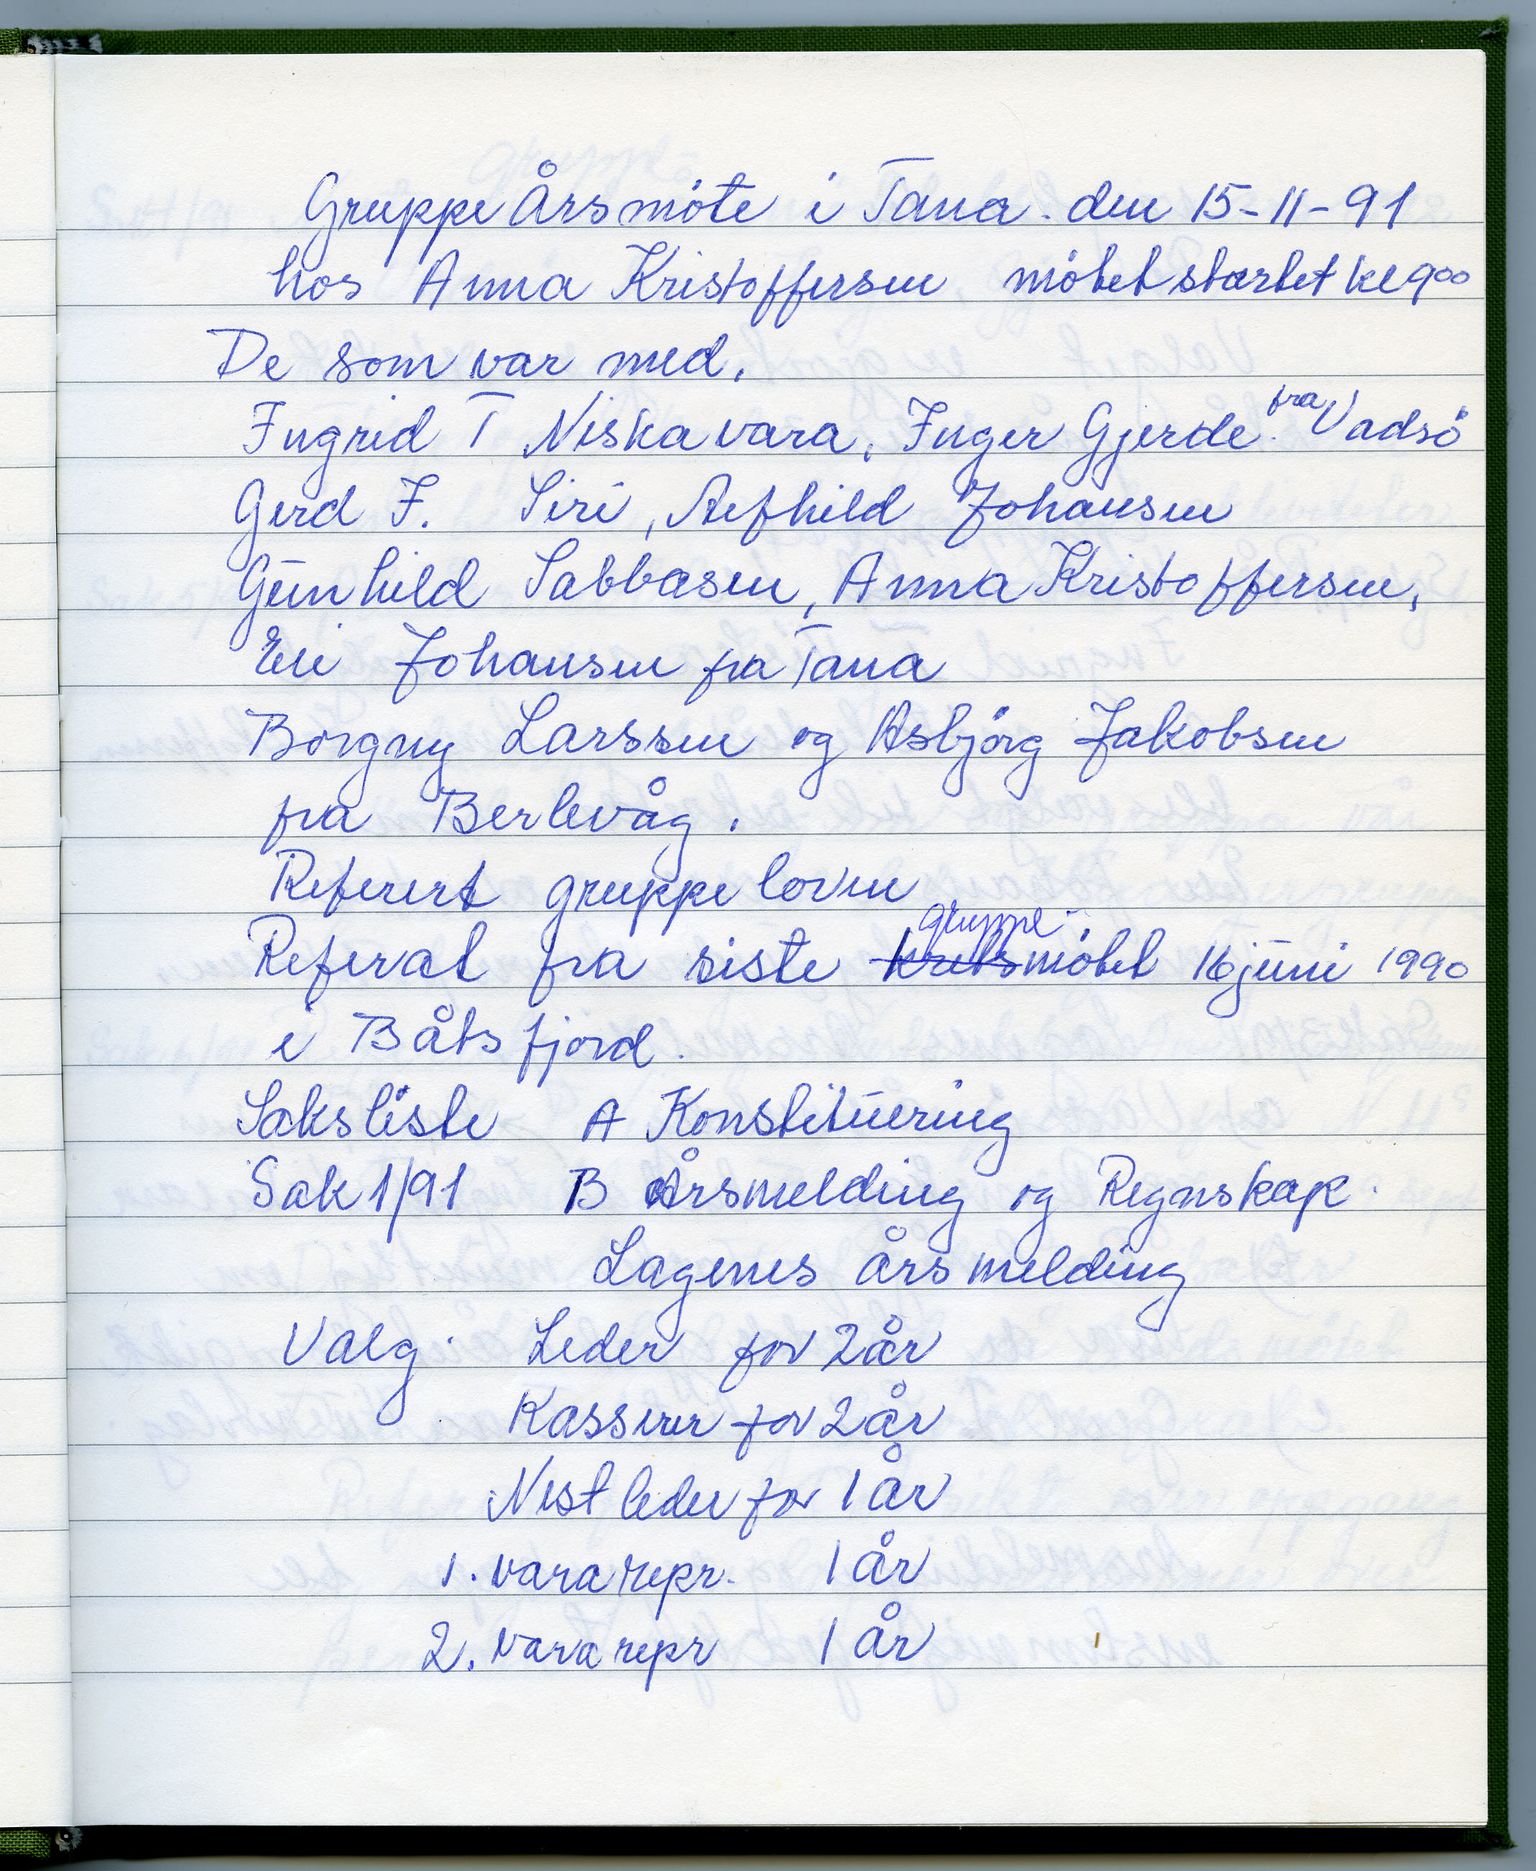 Gruppe Årsmöte i Tana. den 15-11-91
hos Anna Kristoffersen, mötet startet kl 9⁰⁰
De som var med.
Ingrid T Niskavara, Inger Gjerde. fra Vadsö
Gerd I. Siri, Alfhild Johansen
Gunhild Sabbasen, Anna Kristoffersen,
Eli Johansen fra Tana
Borgny Larssen og Asbjörg Jakobsen
fra Berlevåg.
Referert gruppeloven
Referat fra siste gruppe-mötet 16 juni 1990
i Båtsfjord.
Saksliste A Konstituering
Sak 1/91 B Årsmelding og Regnskap.
Lagenes årsmelding
Valg. Leder for 2 år
Kasserer for 2 år
Nestleder for 1 år
1. vararepr. 1 år
2. vararepr 1 år